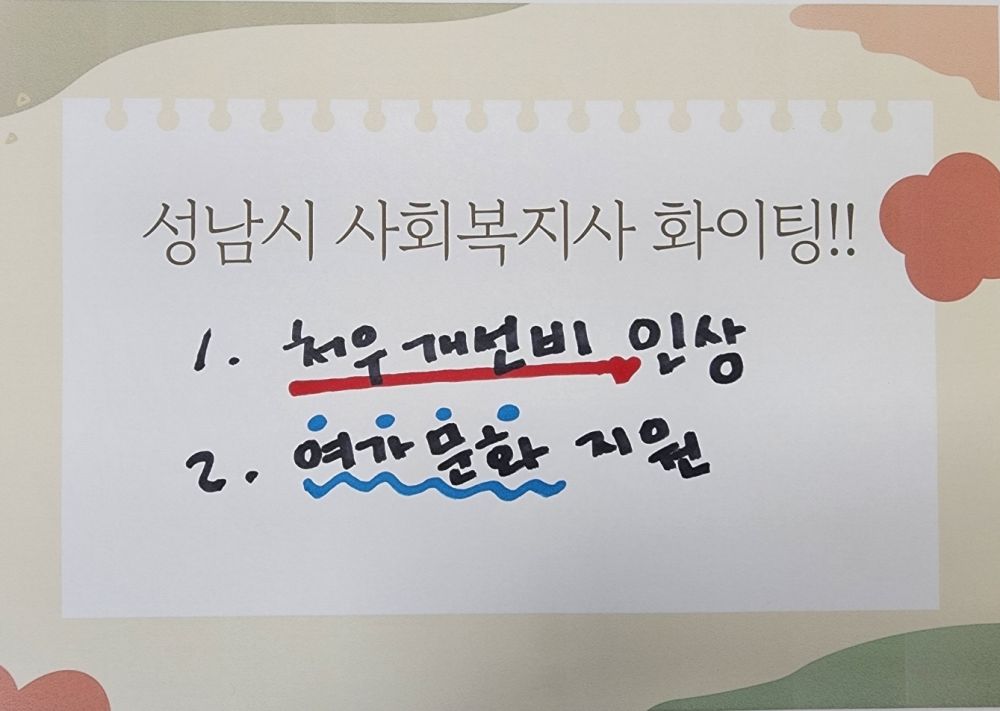 성남시 사회복지사 화이팅!!
1. 처우개선비 인상
2. 여가문화 지원